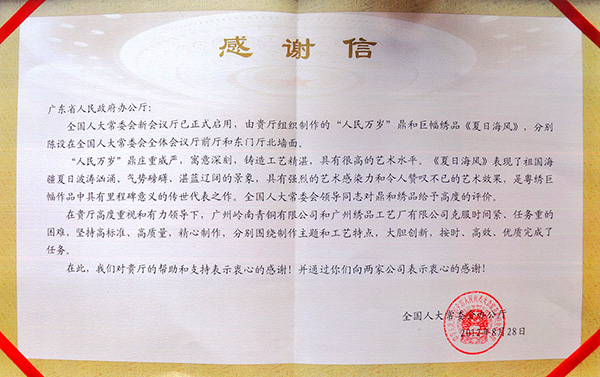 感谢信
广东省人民政府办公厅：
全国人大常委会新会议厅已正式启用，由贵厅组织制作的“人民万岁”鼎和巨幅绣品《夏日海风》，分别
陈设在全国人大常委会全体会议厅前厅和东门厅北墙面。
“人民万岁”鼎庄重威严，寓意深刻，铸造工艺精湛，具有很高的艺术水平。《夏日海风》表现了祖国海
疆夏日波涛汹涌、气势磅礴、湛蓝辽阔的景象，具有强烈的艺术感染力和令人赞叹不已的艺术效果，是粤绣巨
幅作品中具有里程碑意义的传世代表之作。全国人大常委会领导同志对鼎和绣品给予高度的评价。
在贵厅高度重视和有力领导下，广州岭南青铜有限公司和广州绣品工艺厂有限公司克服时间紧、任务重的
困难，坚持高标准、高质量，精心制作，分别围绕制作主题和工艺特点，大胆创新，按时、高效、优质完成了
任务。
在此，我们对贵厅的帮助和支持表示衷心的感谢！并通过你们向两家公司表示衷心的感谢！
全国人大常委会办公厅
2012年8月28日